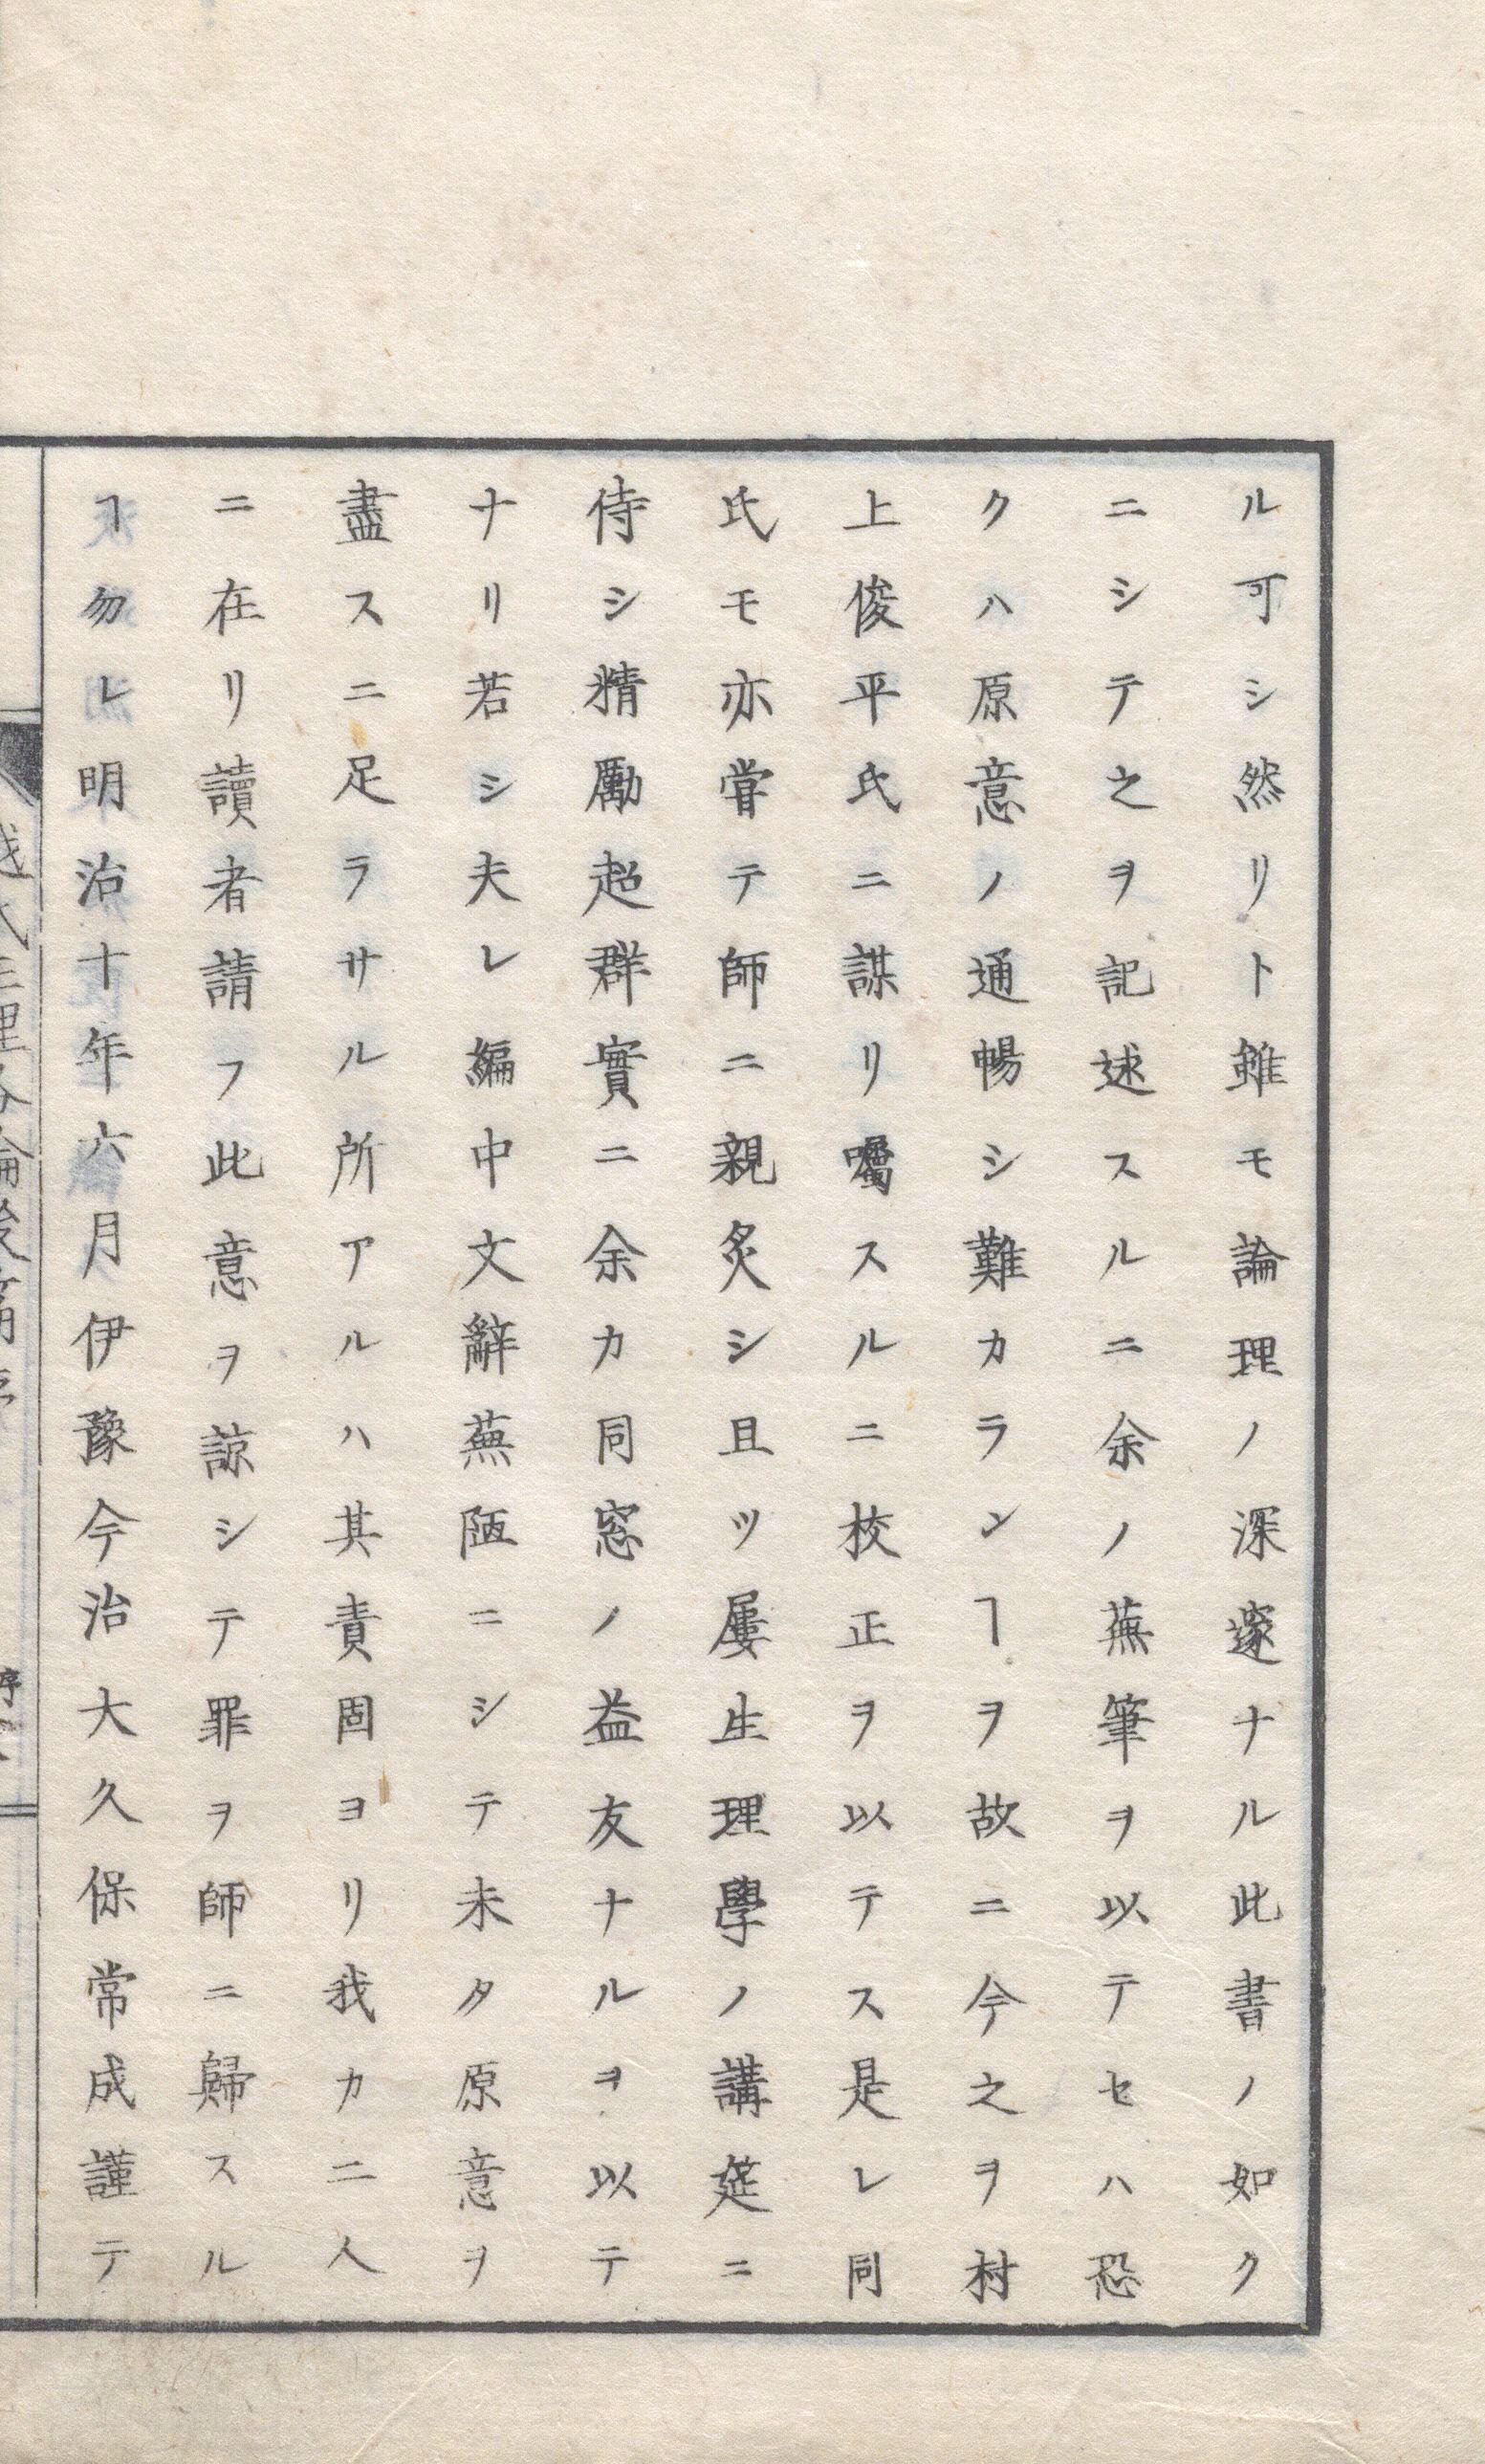 ル可シ然リト雖モ論理ノ深邃ナル此書ノ如ク
ニシテ之ヲ記述スルニ余ノ蕪筆ヲ以テセハ恐
クハ原意ノ通暢シ難カランヿヲ故ニ今之ヲ村
上俊平氏ニ謀リ囑スルニ校正ヲ以テス是レ同
氏モ亦甞テ師ニ親炙シ且ツ屢生理學ノ講筵ニ
侍シ精勵超群實ニ余カ同窓ノ益友ナルヲ以テ
ナリ若シ夫レ編中文辭蕪陋ニシテ未タ原意ヲ
盡スニ足ラサル所アルハ其責固ヨリ我カ二人
ニ在リ讀者請フ此意ヲ諒シテ罪ヲ師ニ歸スル
ヿ勿レ明治十年六月伊豫今治大久保常成謹テ